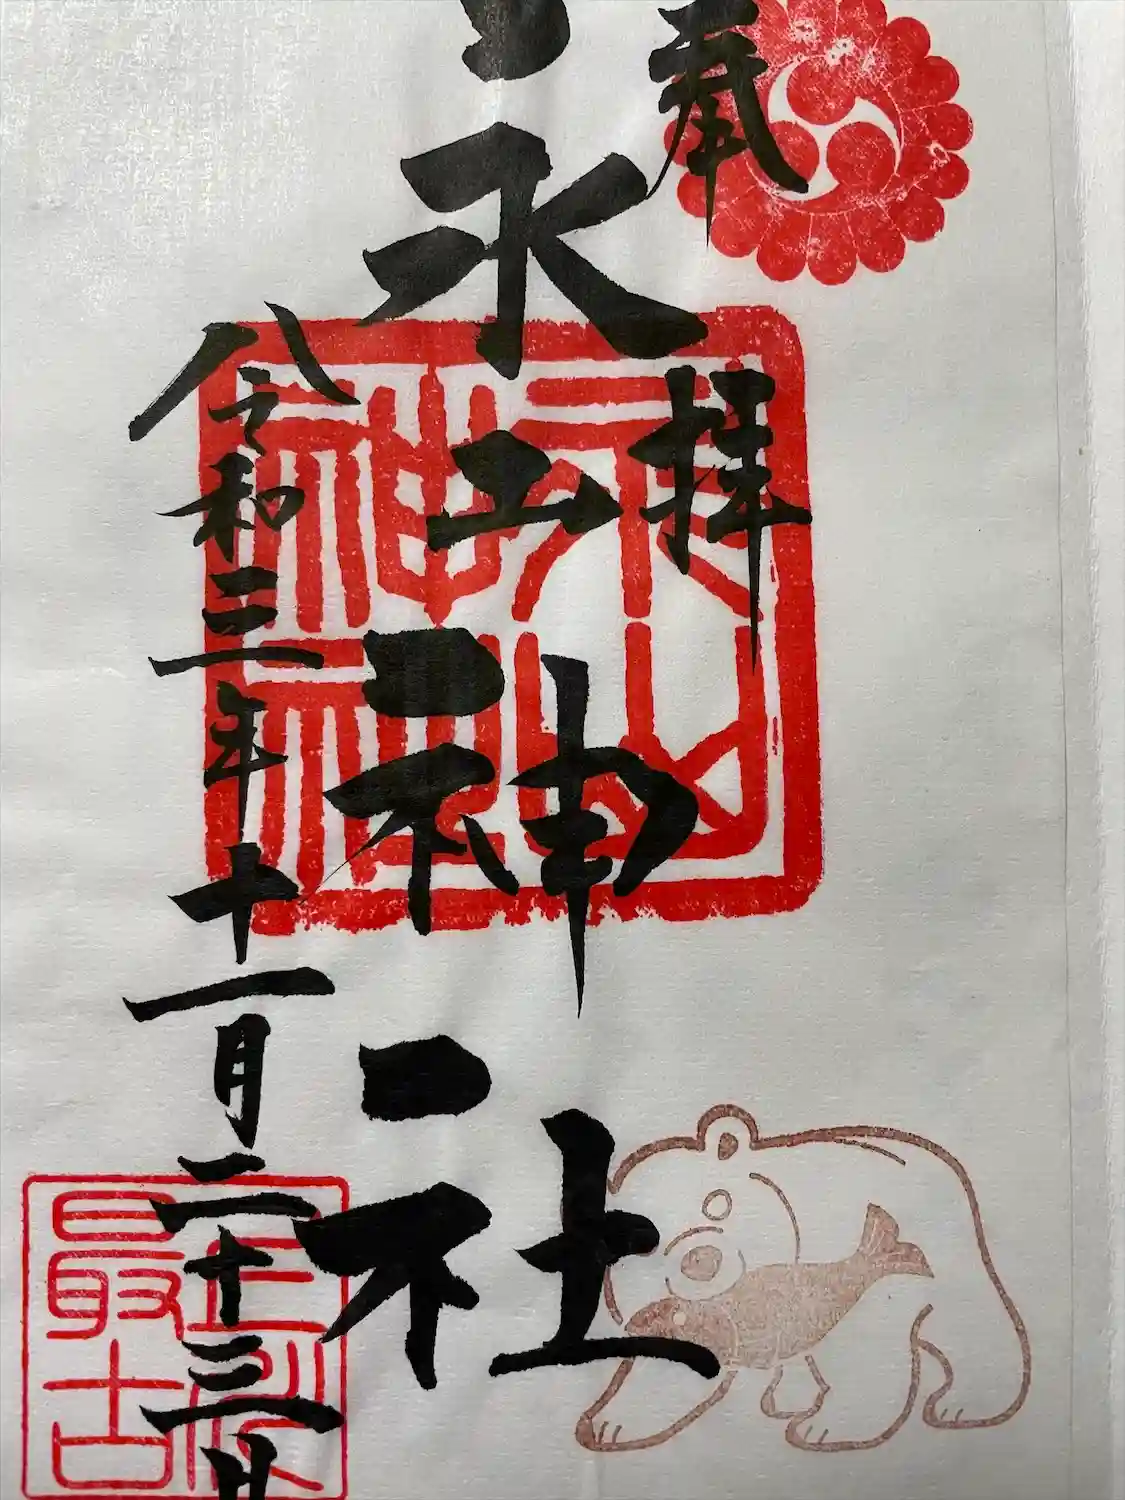 奉拝
永山神社
令和三年十一月二十三日
永山
神社
最古